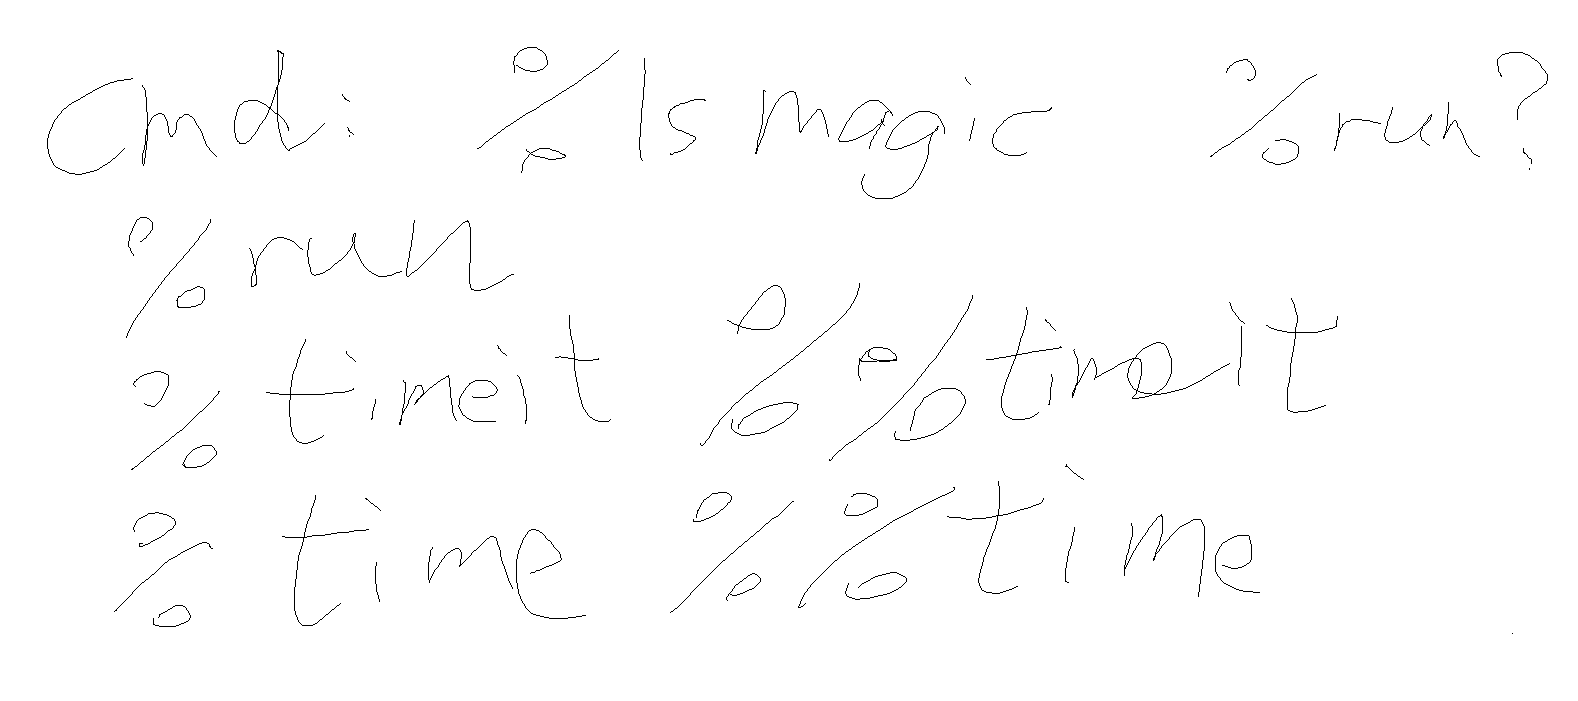 Cmd: %lsmagic %run?
%run
%timeit %%timeit
%time %%time